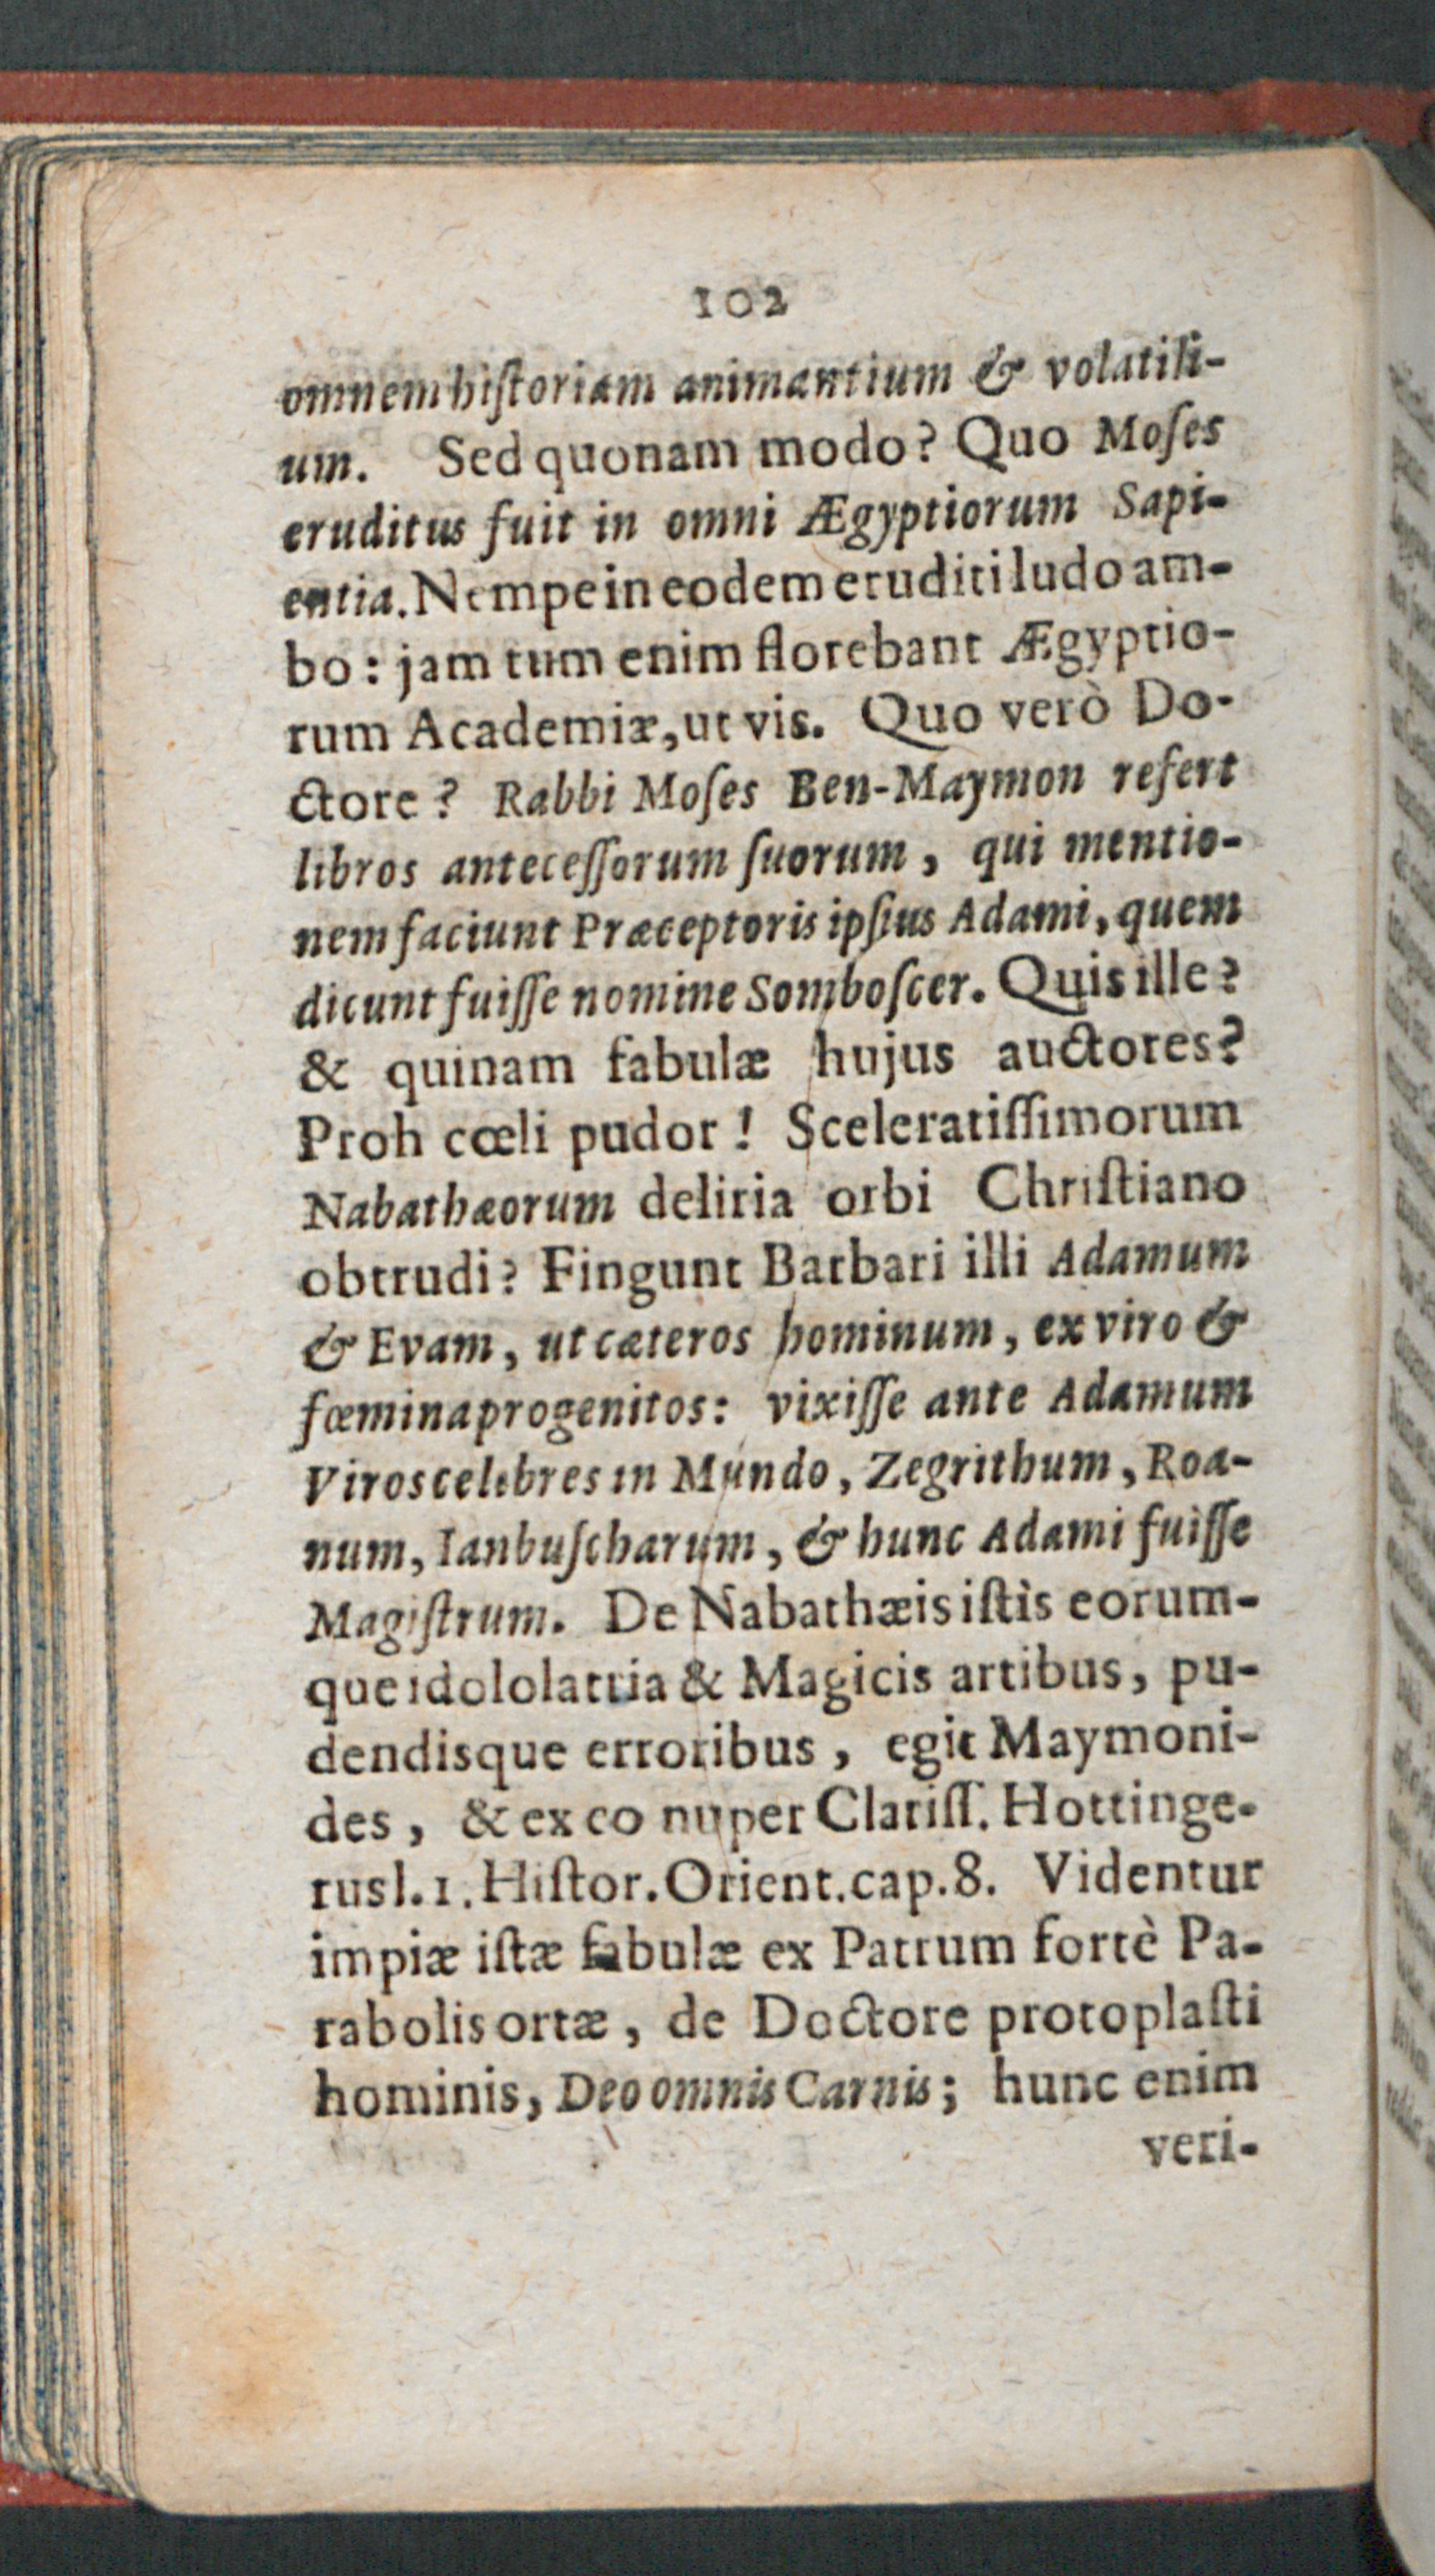 102
omnem hiſtoriam animantium & volatili-
um. Sed quonam modo? Quo Moſes
eruditus fuit in omni Ægyptiorum Sapi-
entia. Nempe in eodem eruditi ludo am-
bo: jam tum enim florebant Ægyptio-
rum Academiæ, ut vis. Quo verò Do-
ctore? Rabbi Moſes Ben-Maymon refert
libros anteceſſorum ſuorum, qui mentio-
nem faciunt Præceptoris ipſius Adami, quem
dicunt fuiſſe nomine Somboſcer. Quis ille?
& quinam fabulæ hujus auctores?
Proh cœli pudor! Sceleratiſſimorum
Nabathæorum deliria orbi Chriſtiano
obtrudi? Fingunt Barbari illi Adamum
& Evam, ut cæteros hominum, ex viro &
fœmina progenitos: vixiſſe ante Adamum
Viros celebres in Mundo, Zegrithum, Roa-
num, Ianbuſcharum, & hunc Adami fuiſſe
Magiſtrum. De Nabathæis iſtis eorum-
que idololatria & Magicis artibus, pu-
dendisque erroribus, egit Maymoni-
des, & ex eo nuper Clariſſ. Hottinge-
rus l. 1. Hiſtor. Orient. cap. 8. Videntur
impiæ iſtæ fabulæ ex Patrum fortè Pa-
rabolis ortæ, de Doctore protoplaſti
hominis, Deo omnis Carnis; hunc enim
veri-